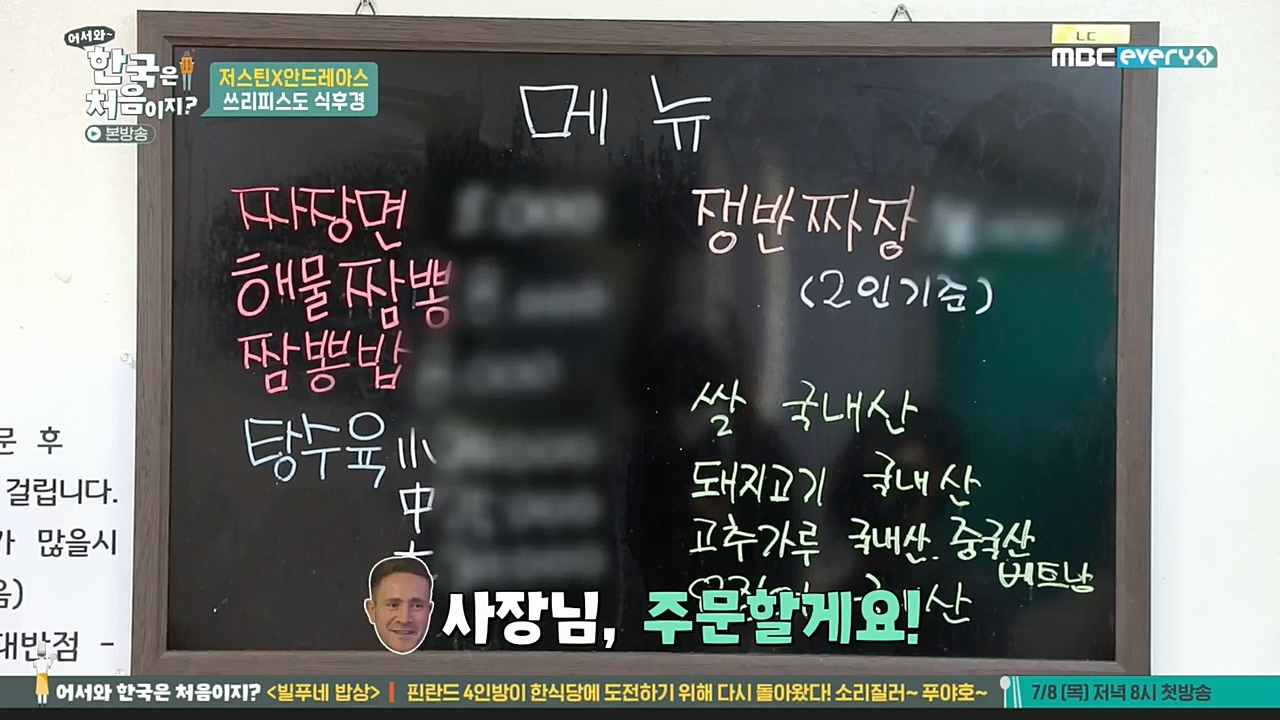 어서와~
한국은
처음이지?
본방송
저스틴X안드레아스
쓰리피스도 식후경
LC
MBC every1
메뉴
짜장면
해물짬뽕
짬뽕밥
탕수육 小
中
쟁반짜장
(2인기준)
쌀 국내산
돼지고기 국내산
고추가루 국내산. 중국산
베트남
산
문 후
걸립니다.
가 많을시
음)
대반점 -
사장님, 주문할게요!
어서와 한국은 처음이지? <빌푸네 밥상> | 핀란드 4인방이 한식당에 도전하기 위해 다시 돌아왔다! 소리질러~ 푸야호~
7/8 (목) 저녁 8시 첫방송